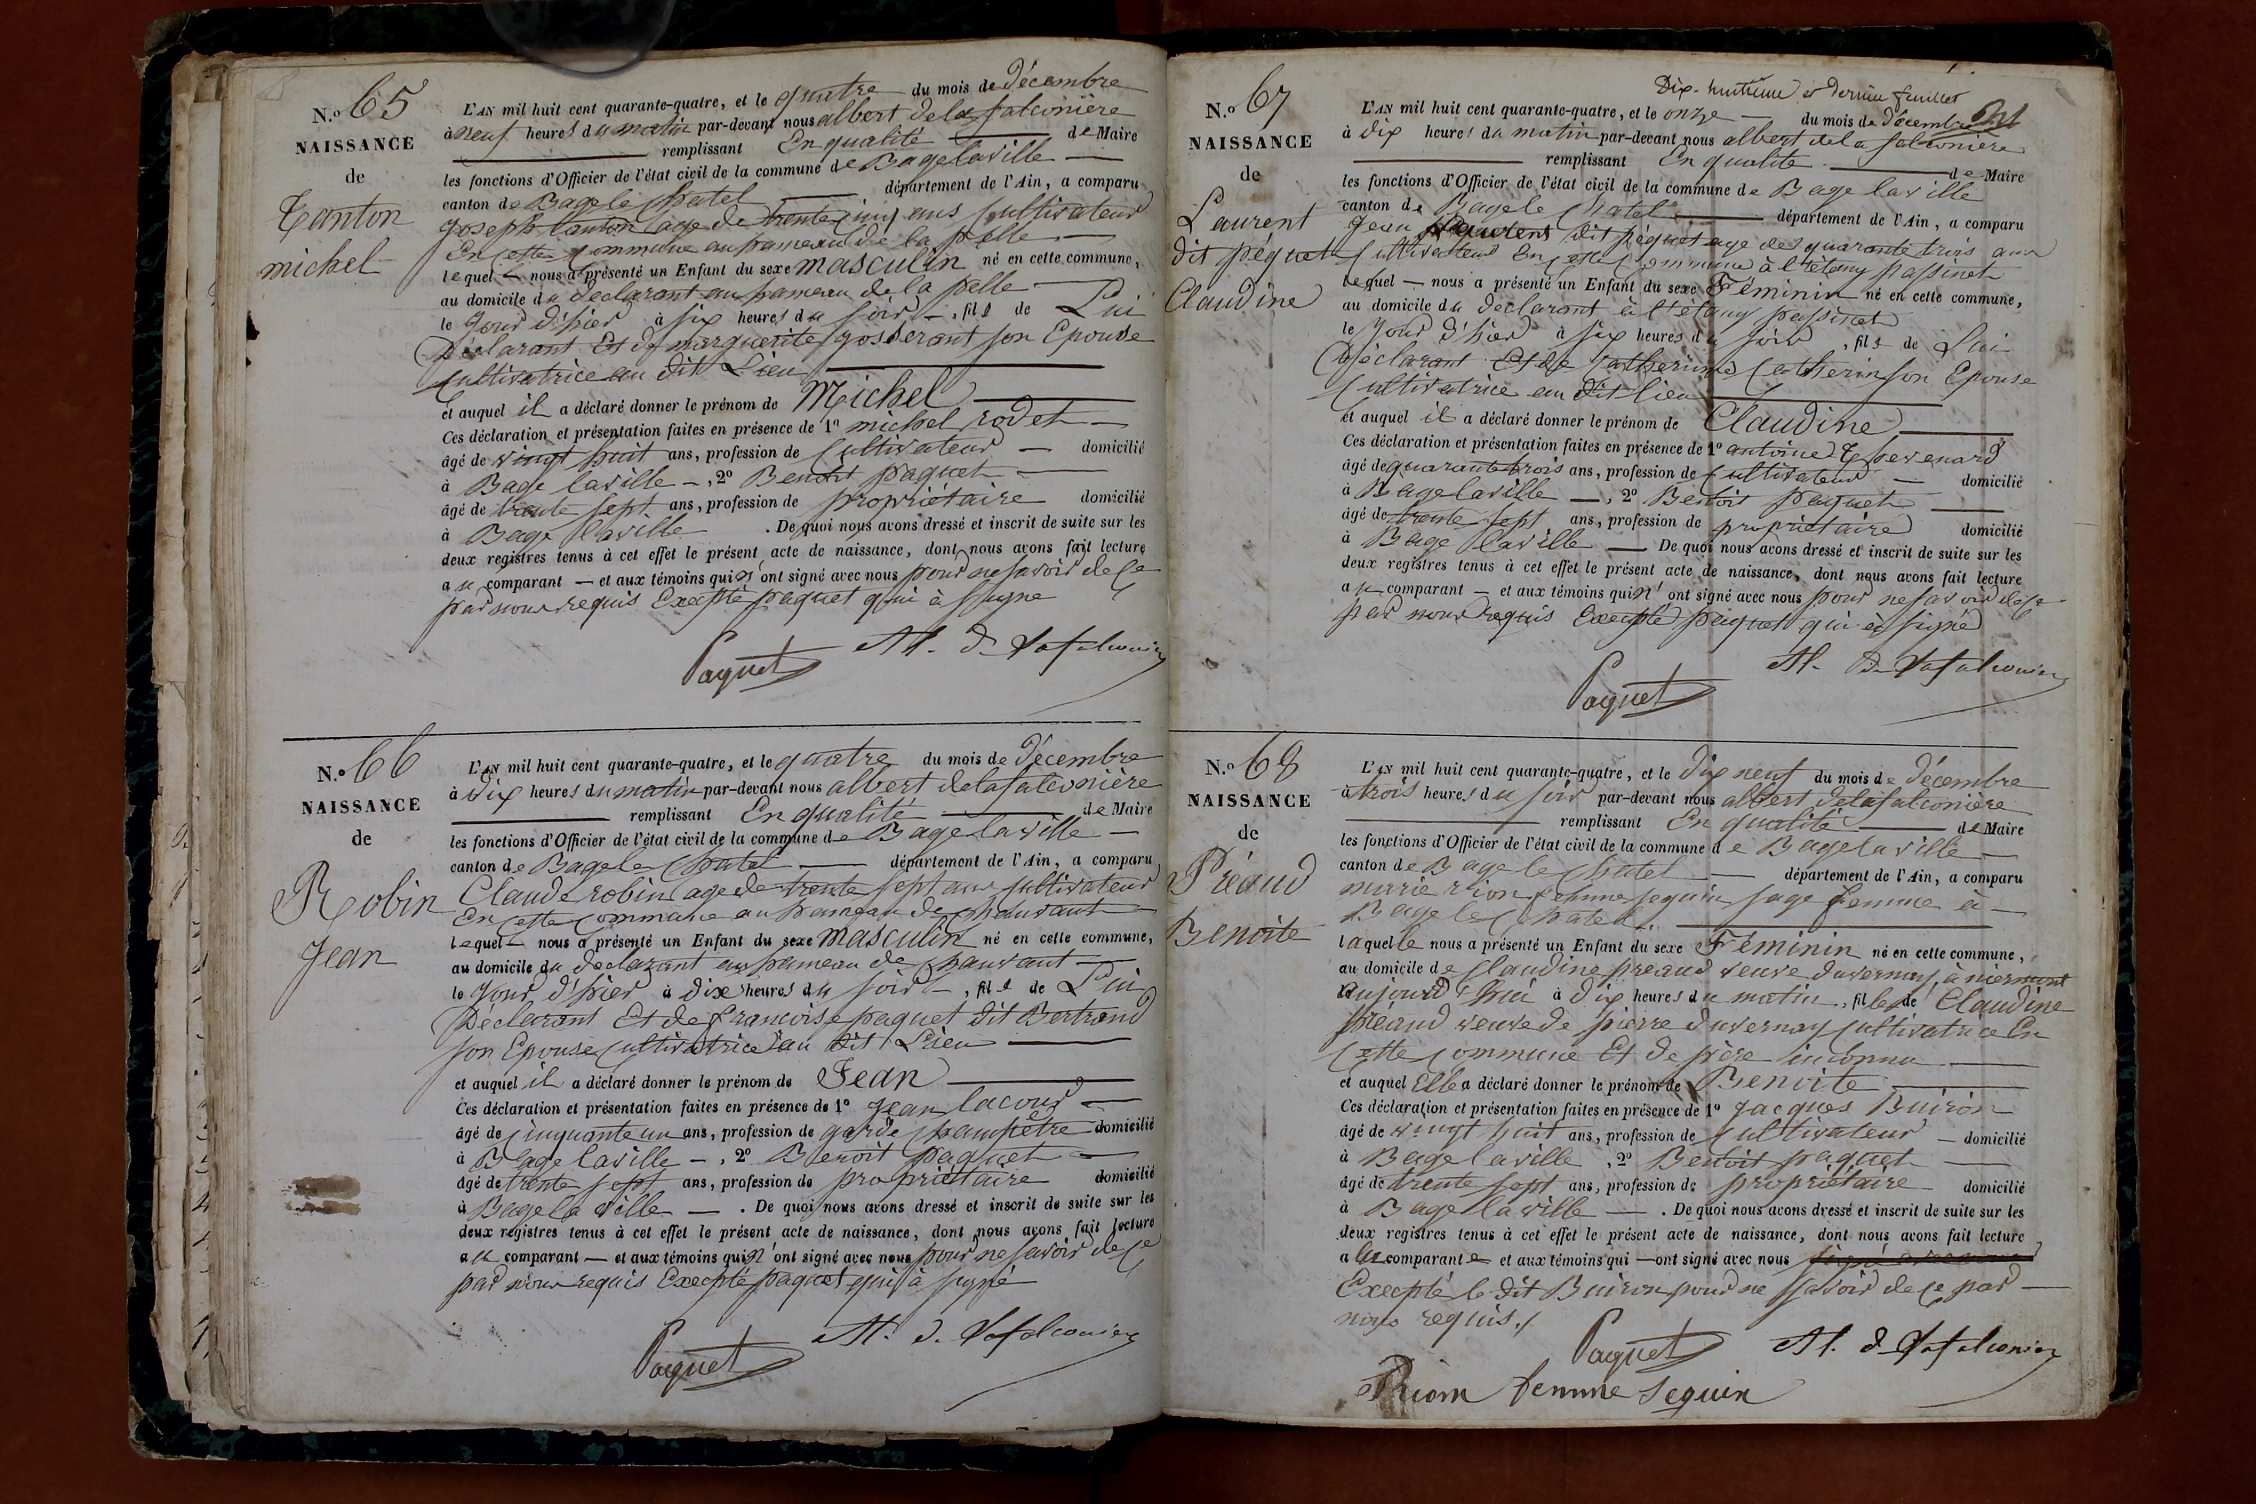 N.o 65
NAISSANCE
de
Tanton
michel
L'AN mil huit cent quarante-quatre, et le quatre du mois de décembre
à neuf heures du matin par-devant nous albert delafalconière
remplissant En qualité de Maire
les fonctions d'Officier de l'état civil de la commune de Bagelaville
canton de Bagele Chatel département de l'Ain, a comparu
joseph tanton age de trente cinq ans Cultivateur
En Cette Commune au hameau de la pelle
lequel nous a présenté un Enfant du sexe masculin né en cette commune,
au domicile du declarant au hameau de la pelle
le Jour d'hier à six heures du soir, fils de Lui
Déclarant Et de marguerite gosserant son Epouse
Cultivatrice au dit Lieu
et auquel il a déclaré donner le prénom de Michel
Ces déclaration et présentation faites en présence de 1o michel rodet
âgé de vingt huit ans, profession de Cultivateur domicilié
à Bage laville, 2o Benoit paquet
âgé de trente sept ans, profession de propriétaire domicilié
à Bage laville. De quoi nous avons dressé et inscrit de suite sur les
deux registres tenus à cet effet le présent acte de naissance, dont nous avons fait lecture
au comparant et aux témoins qui n'ont signé avec nous pour ne savoir de Ce
par nous requis Excepté paquet qui à signe
Paquet Al. d Lafalconière
N.o 66
NAISSANCE
de
Robin
Jean
L'AN mil huit cent quarante-quatre, et le quatre du mois de décembre
à Dix heures du matin par-devant nous albert delafalconière
remplissant En qualité de Maire
les fonctions d'Officier de l'état civil de la commune de Bage laville
canton de Bagele Chatel département de l'Ain, a comparu
Claude robin age de trente sept ans Cultivateur
En Cette Commune au hameau de Chauvant
lequel nous a présenté un Enfant du sexe masculin né en cette commune,
au domicile du declarant au hameau de Chauvant
le Jour d'hier à dix heures du soir, fils de Lui
Déclarant Et de francoise paquet dit Bertrand
son Epouse Cultivatrice au dit Lieu
et auquel il a déclaré donner le prénom de Jean
Ces déclaration et présentation faites en présence de 1o Jean lacour
âgé de Cinquante un ans, profession de garde Champêtre domicilié
à Bage laville, 2o Benoit paquet
âgé de trente sept ans, profession de propriétaire domicilié
à Bage la ville. De quoi nous avons dressé et inscrit de suite sur les
deux registres tenus à cet effet le présent acte de naissance, dont nous avons fait lecture
au comparant et aux témoins qui n'ont signé avec nous pour ne savoir de Ce
par nous requis Excepté paquet qui à signé
Paquet Al. d. Lafalconière
Dix-huitième et dernier feuillet
N.o 67
NAISSANCE
de
Laurent
dit péquet
Claudine
L'AN mil huit cent quarante-quatre, et le onze du mois de décembre
à dix heures du matin par-devant nous albert delafalconière
remplissant En qualité de Maire
les fonctions d'Officier de l'état civil de la commune de Bage laville
canton de Bagele Chatel département de l'Ain, a comparu
Jean Laurent dit péquet age de quarante trois ans
Cultivateur En Cette Commune à l'étang passinet
lequel nous a présenté un Enfant du sexe Féminin né en cette commune,
au domicile du declarant à l'étang passinet
le Jour d'hier à six heures du soir, fils de Lui
Déclarant Et de Catherine Catherin son Epouse
Cultivatrice au dit lieu
et auquel il a déclaré donner le prénom de Claudine
Ces déclaration et présentation faites en présence de 1o antoine Thevenard
âgé de quarante trois ans, profession de Cultivateur domicilié
à Bagelaville, 2o Benoit paquet
âgé de trente sept ans, profession de propriétaire domicilié
à Bage laville De quoi nous avons dressé et inscrit de suite sur les
deux registres tenus à cet effet le présent acte de naissance, dont nous avons fait lecture
au comparant et aux témoins qui n'ont signé avec nous pour ne savoir de Ce
par nous requis Excepté paquet qui à signé
Paquet Al. d Lafalconière
N.o 68
NAISSANCE
de
Préaud
Benoite
L'AN mil huit cent quarante-quatre, et le dix neuf du mois de décembre
à trois heures du soir par-devant nous albert delafalconière
remplissant En qualité de Maire
les fonctions d'Officier de l'état civil de la commune de Bagelaville
canton de Bage le Chatel département de l'Ain, a comparu
marie rion femme seguin sage femme à
Bage le Chatel
laquelle nous a présenté un Enfant du sexe Féminin né en cette commune,
au domicile de Claudine preaud veuve duvernay, à niermont
aujourd'hui à dix heures du matin, fille de Claudine
preaud veuve de pierre duvernay Cultivatrice En
Cette Commune Et de père inconnu
et auquel Elle a déclaré donner le prénom de Benoite
Ces déclaration et présentation faites en présence de 1o Jacques Buiron
âgé de vingt huit ans, profession de Cultivateur domicilié
à Bage laville, 2o Benoit paquet
âgé de trente sept ans, profession de propriétaire domicilié
à Bage laville. De quoi nous avons dressé et inscrit de suite sur les
deux registres tenus à cet effet le présent acte de naissance, dont nous avons fait lecture
a la comparante et aux témoins qui ont signé avec nous
Excepté le dit Buiron pour ne savoir de Ce par
nous requis./
Paquet Al. d Lafalconière
Riom femme Seguin